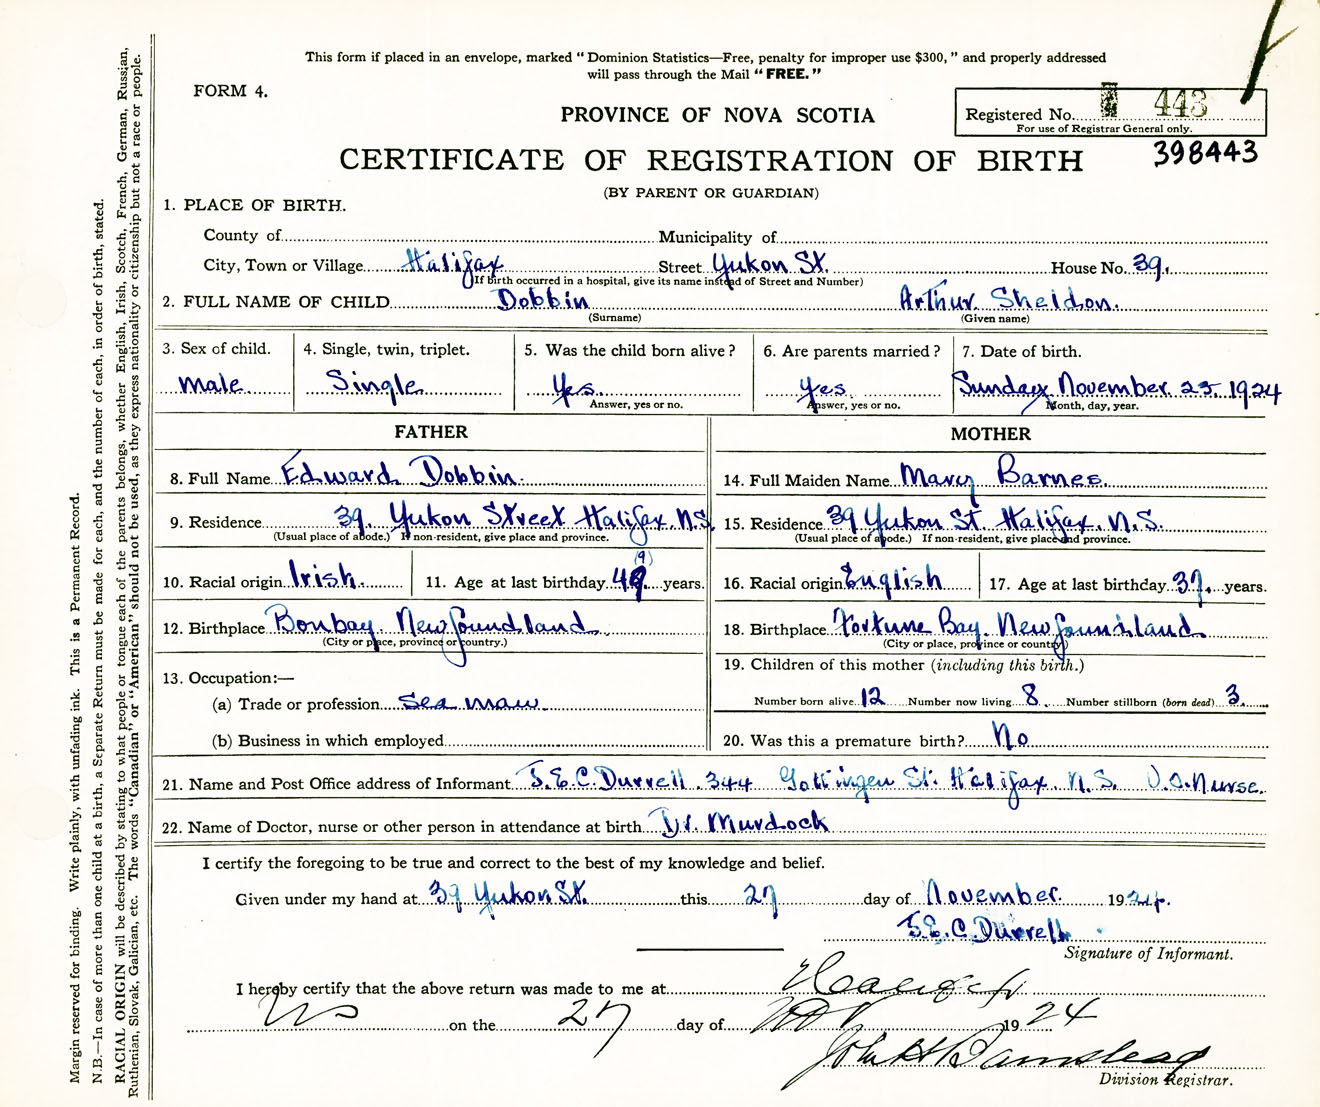 This form if placed in an envelope, marked "Dominion Statistics—Free, penalty for improper use $300," and properly addressed
will pass through the Mail "FREE."
FORM 4.
PROVINCE OF NOVA SCOTIA
Registered No. 443
For use of Registrar General only.
CERTIFICATE OF REGISTRATION OF BIRTH
398443
(BY PARENT OR GUARDIAN)
1. PLACE OF BIRTH.
County of Municipality of
City, Town or Village Halifax Street Yukon St. House No. 39.
(If birth occurred in a hospital, give its name instead of Street and Number)
2. FULL NAME OF CHILD Dobbin Arthur Sheldon.
(Surname) (Given name)
3. Sex of child. 4. Single, twin, triplet. 5. Was the child born alive? 6. Are parents married? 7. Date of birth.
Male Single Yes. Yes. Sunday November 23. 1924
Answer, yes or no. Answer, yes or no. Month, day, year.
FATHER MOTHER
8. Full Name Edward Dobbin. 14. Full Maiden Name Mary Barnes.
9. Residence 39. Yukon Street Halifax. N.S. 15. Residence 39 Yukon St. Halifax. N.S.
(Usual place of abode.) If non-resident, give place and province. (Usual place of abode.) If non-resident, give place and province.
(9)
10. Racial origin Irish. 11. Age at last birthday 49 years. 16. Racial origin English 17. Age at last birthday 37. years.
12. Birthplace Bonbay. Newfoundland. 18. Birthplace Fortune Bay. Newfoundland
(City or place, province or country.) (City or place, province or country)
13. Occupation:— 19. Children of this mother (including this birth.)
(a) Trade or profession Sea man. Number born alive 12 Number now living 8. Number stillborn (born dead) 3.
(b) Business in which employed 20. Was this a premature birth? No
21. Name and Post Office address of Informant J.E.C. Durrell. 344 Gottingen St. Halifax. N.S. V.O. Nurse.
22. Name of Doctor, nurse or other person in attendance at birth Dr. Murdock
I certify the foregoing to be true and correct to the best of my knowledge and belief.
Given under my hand at 39 Yukon St. this 27 day of November. 1924.
J.E.C. Durrell
Signature of Informant.
I hereby certify that the above return was made to me at Halifax
NS on the 27 day of Nov 1924
John H Barnstead
Division Registrar.
Margin reserved for binding. Write plainly, with unfading ink. This is a Permanent Record.
N.B.—In case of more than one child at a birth, a Separate Return must be made for each, and the number of each, in order of birth, stated.
RACIAL ORIGIN will be described by stating to what people or tongue each of the parents belongs, whether English, Irish, Scotch, French, German, Russian,
Ruthenian, Slovak, Galician, etc. The words "Canadian" or "American" should not be used, as they express nationality or citizenship but not a race or people.